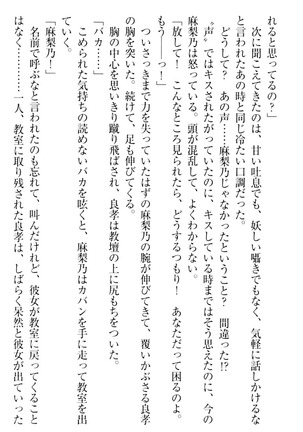 れると思ってるの？」
　次に聞こえてきたのは、甘い吐息でも、妖しい囁きでもなく、気軽に話しかけるな
と言われたあの時と同じ冷たい口調だった。
　どうして？　あの声……麻梨乃じゃなかったということ？　間違った!?
　〝声〟ではキスされたがっていたのに、キスしている時まではそう思えたのに、今の
麻梨乃は怒っている。頭が混乱して、よくわからない。
「放して！　こんなところ見られたら、どうするつもり！　あなただって困るのよ。
もう――っ！」
　ついさっきまで力を失っていたはずの麻梨乃の腕が伸びてきて、覆いかぶさる良孝
の胸を突いた。続けて、足も伸びてくる。
　胸の中心を思いきり蹴り飛ばされ、良孝は教壇の上に尻もちをついた。
「バカ……」
　こめられた気持ちの読めないバカを呟くと、麻梨乃はカバンを手に走って教室を出
ていく。
「麻梨乃！」
　名前で呼ぶなと言われたのも忘れて、叫んだけれど、彼女が教室に戻ってくること
はなく……一人、教室に取り残された良孝は、しばらく呆然と彼女が出ていった